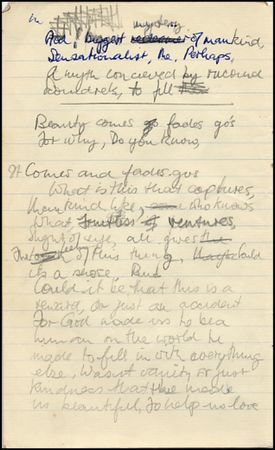 in
mystery
And biggest redeemer of mankind,
Sensationalist, Me, Perhaps,
A myth conceived by
scoundrels, to fill
Beauty comes fades go's
For why, Do you know,
It Comes and fades gos
What is this that captures,
man kind like, who knows
What of ventures,
sight of eye, all gives the
of this thing, Maybe Could
its a rose, But
Could it be that this is a
reward, or just an accident
For God made us to be a
human on the world he
made to fill in with everything
else, Wasn't vanity, or just
kindness that He made
us beautiful, To help us love